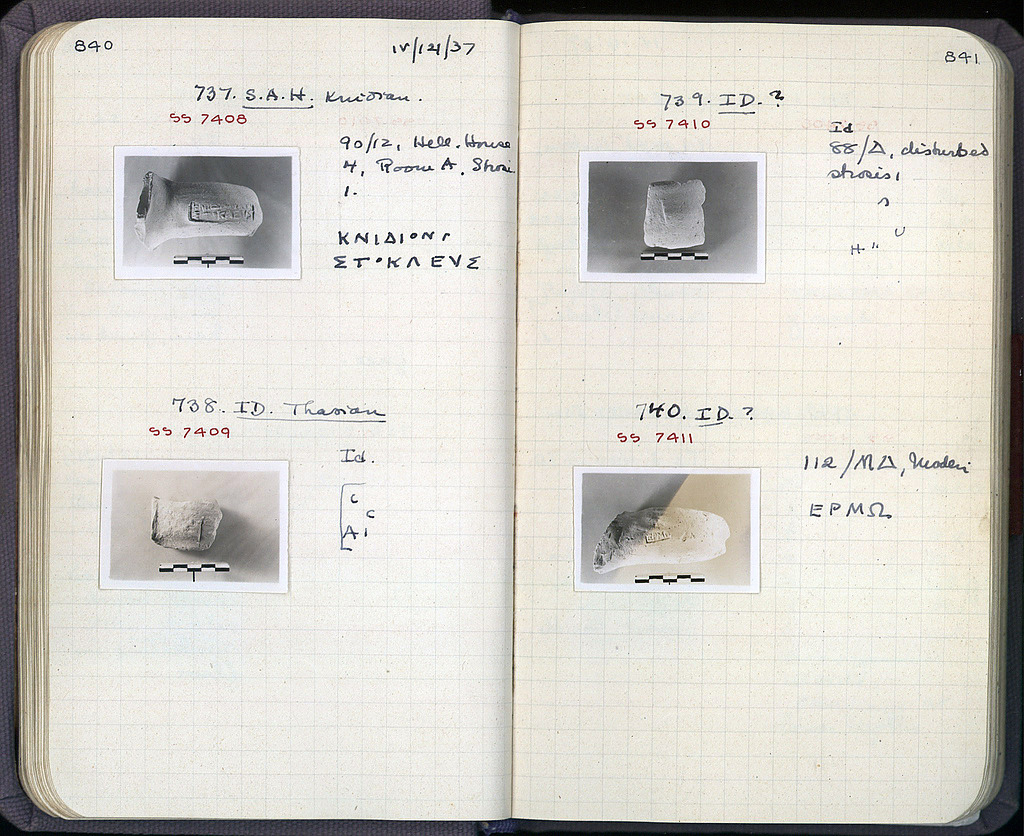 840
IV/121/37
737. S.A.H. Knidian.
SS 7408
90/12, Hell. House
4, Room A, Strosi
1.
ΚΝΙΔΙΟΝ
ΣΤΟΚΛΕΥΣ
738. ID. Thasian
SS 7409
Id.
C
C
A I
841
739. ID. ?
SS 7410
Id
88/Δ, disturbed
strosis,
740. ID. ?
SS 7411
112/ΜΔ, Modern
ΕΡΜΩ